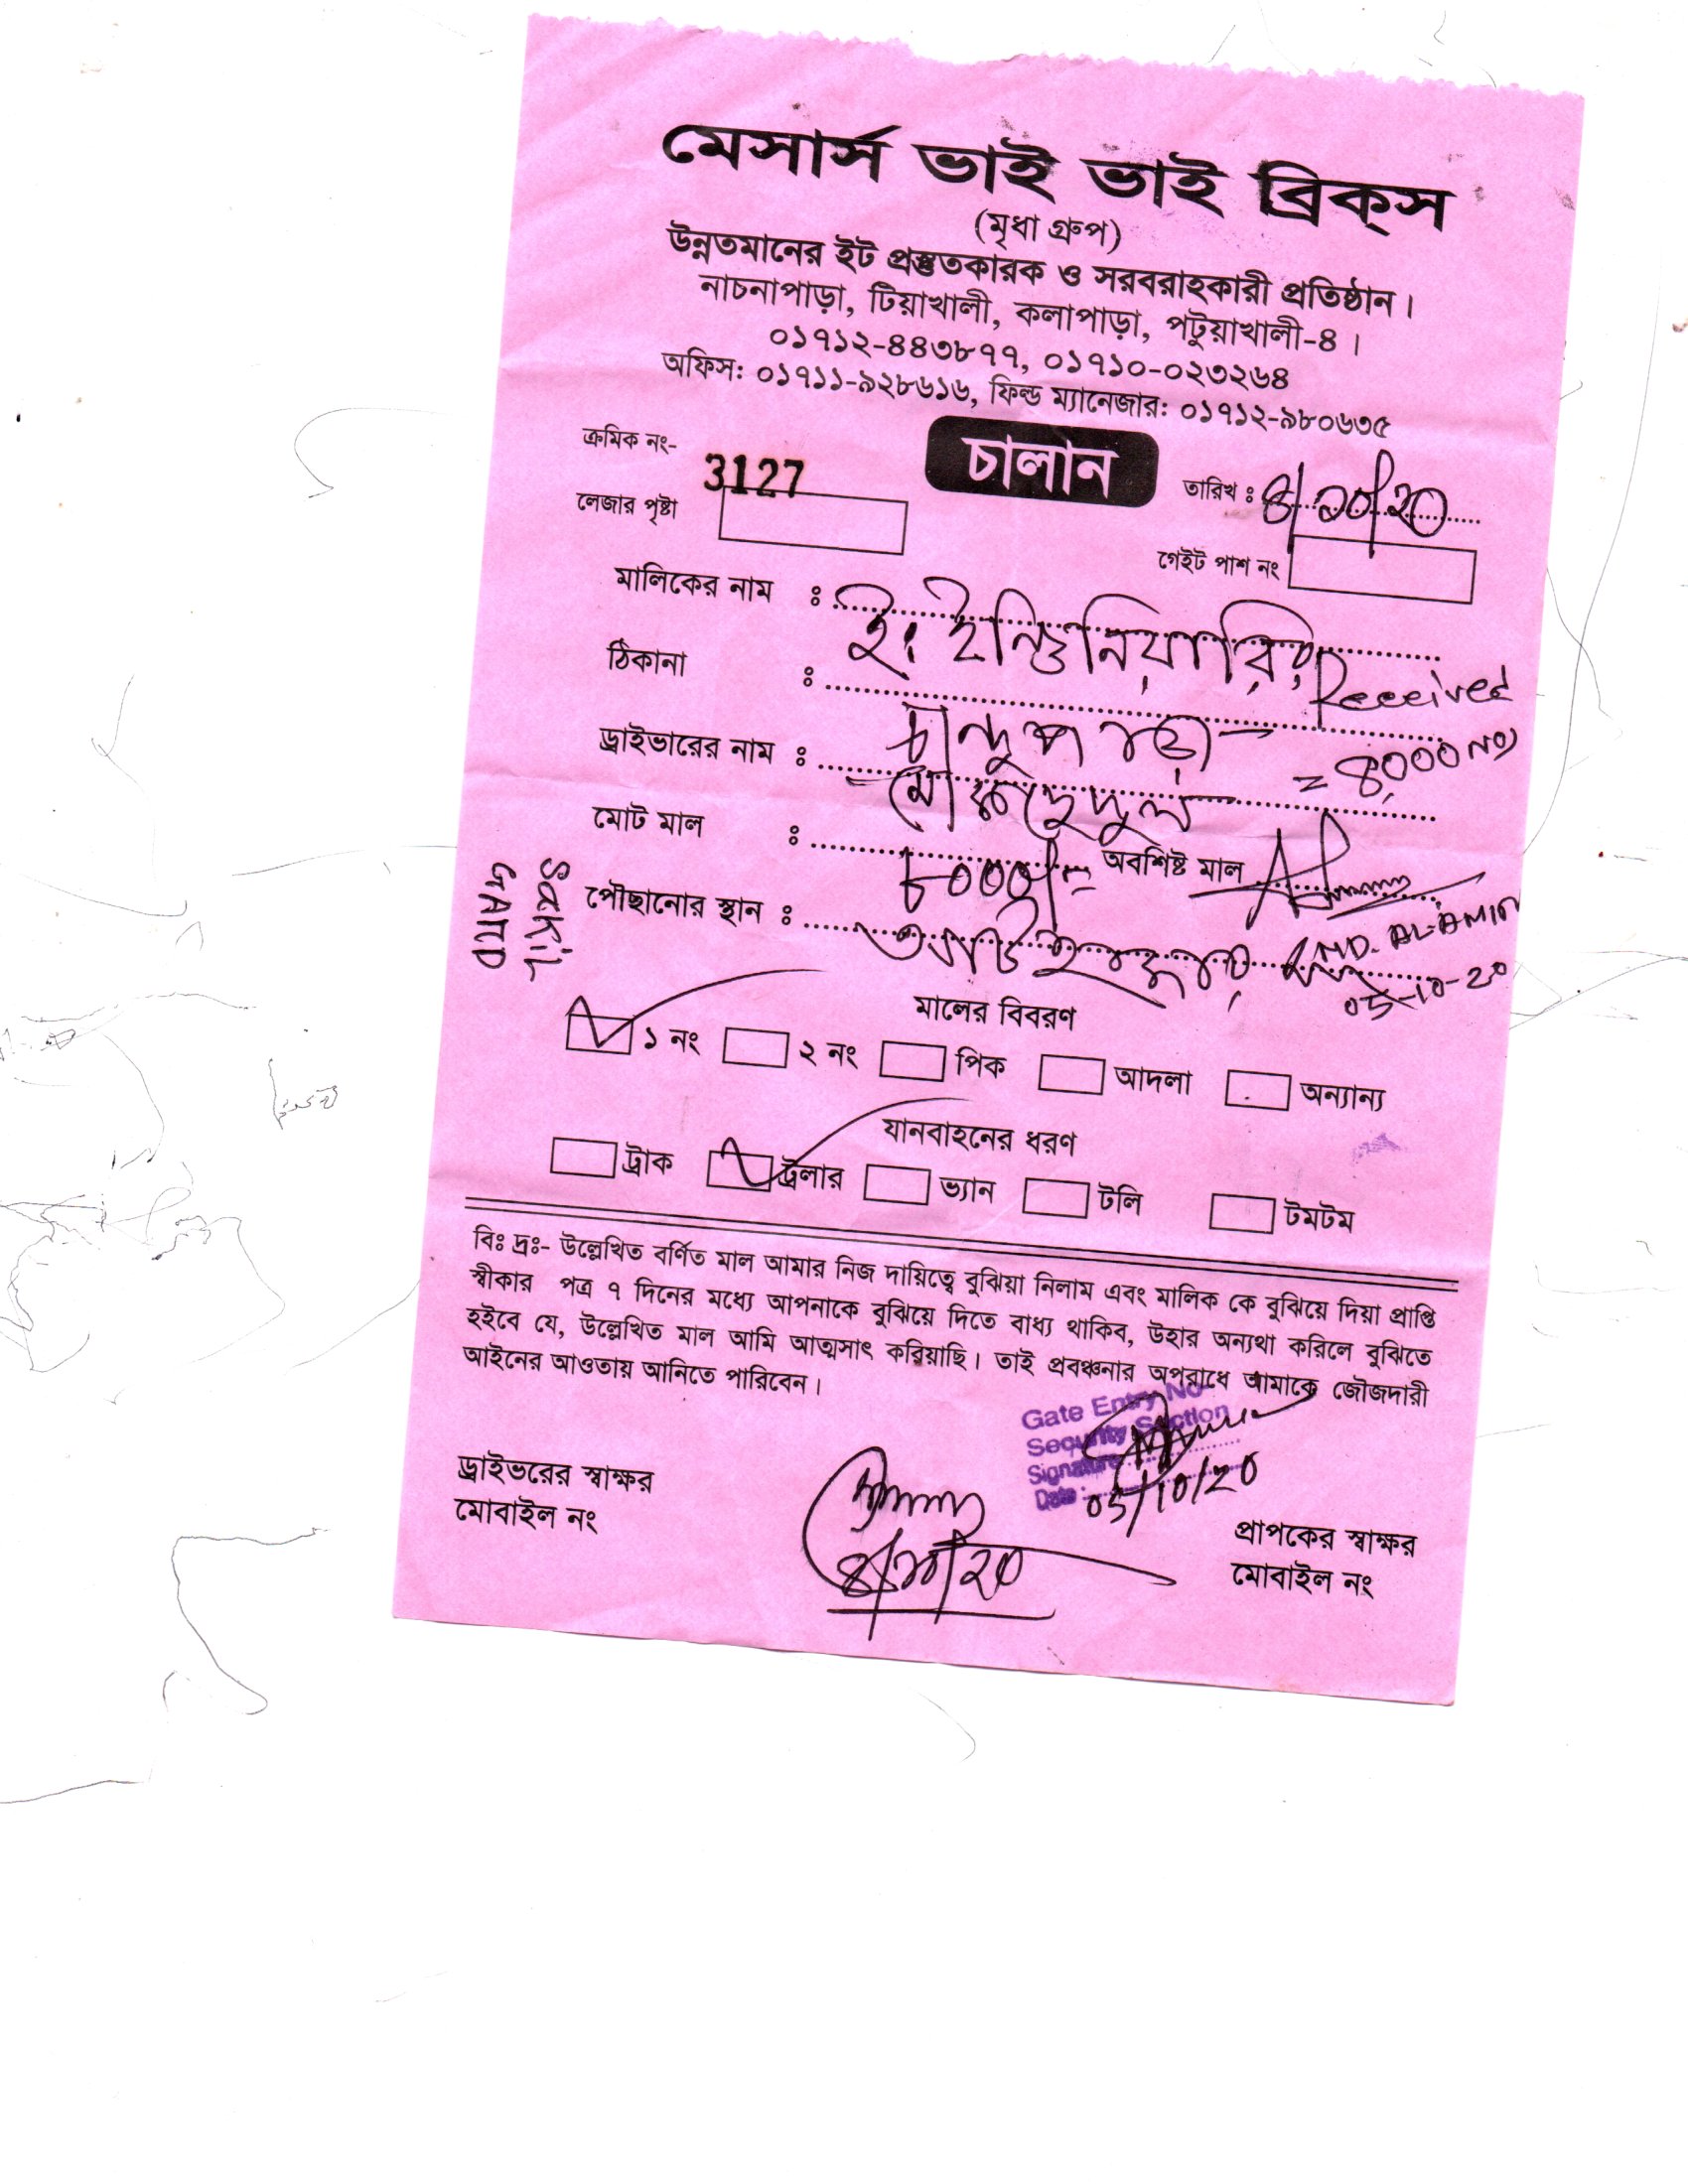 মেসার্স ভাই ভাই ব্রিক্স
(মৃধা গ্রুপ)
উন্নতমানের ইট প্রস্তুতকারক ও সরবরাহকারী প্রতিষ্ঠান।
নাচনাপাড়া, টিয়াখালী, কলাপাড়া, পটুয়াখালী-৪।
০১৭১২-৪৪৩৮৭৭, ০১৭১০-০২৩২৬৪
অফিস: ০১৭১১-৯২৮৬১৬, ফিল্ড ম্যানেজার: ০১৭১২-৯৮০৬৩৫
ক্রমিক নং- 3127
চালান
তারিখ : ৪/১০/২০
লেজার পৃষ্টা
গেইট পাশ নং
মালিকের নাম : ই, ইন্জিনিয়ারিং
ঠিকানা :
Received
ড্রাইভারের নাম :
= 8,000 nos
মোট মাল : ৮০০০/= অবশিষ্ট মাল
MD. AL-AMIN
05-10-20
পৌছানোর স্থান :
SaKiL
GATCO
মালের বিবরণ
১ নং ২ নং পিক আদলা অন্যান্য
যানবাহনের ধরণ
ট্রাক ট্রলার ভ্যান টলি টমটম
বিঃ দ্রঃ- উল্লেখিত বর্ণিত মাল আমার নিজ দায়িত্বে বুঝিয়া নিলাম এবং মালিক কে বুঝিয়ে দিয়া প্রাপ্তি
স্বীকার পত্র ৭ দিনের মধ্যে আপনাকে বুঝিয়ে দিতে বাধ্য থাকিব, উহার অন্যথা করিলে বুঝিতে
হইবে যে, উল্লেখিত মাল আমি আত্মসাৎ করিয়াছি। তাই প্রবঞ্চনার অপরাধে আমাকে জৌজদারী
আইনের আওতায় আনিতে পারিবেন।
Gate Entry No
Security Section
Signature
Date : 05/10/20
ড্রাইভরের স্বাক্ষর
মোবাইল নং
৪/১০/২০
প্রাপকের স্বাক্ষর
মোবাইল নং